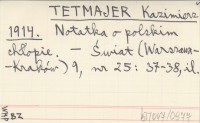 TETMAJER Kazimierz
1914. Notatka o polskim
chłopie. — Świat (Warszawa-
-Kraków) 9, nr 25: 37-38, il.
BZ